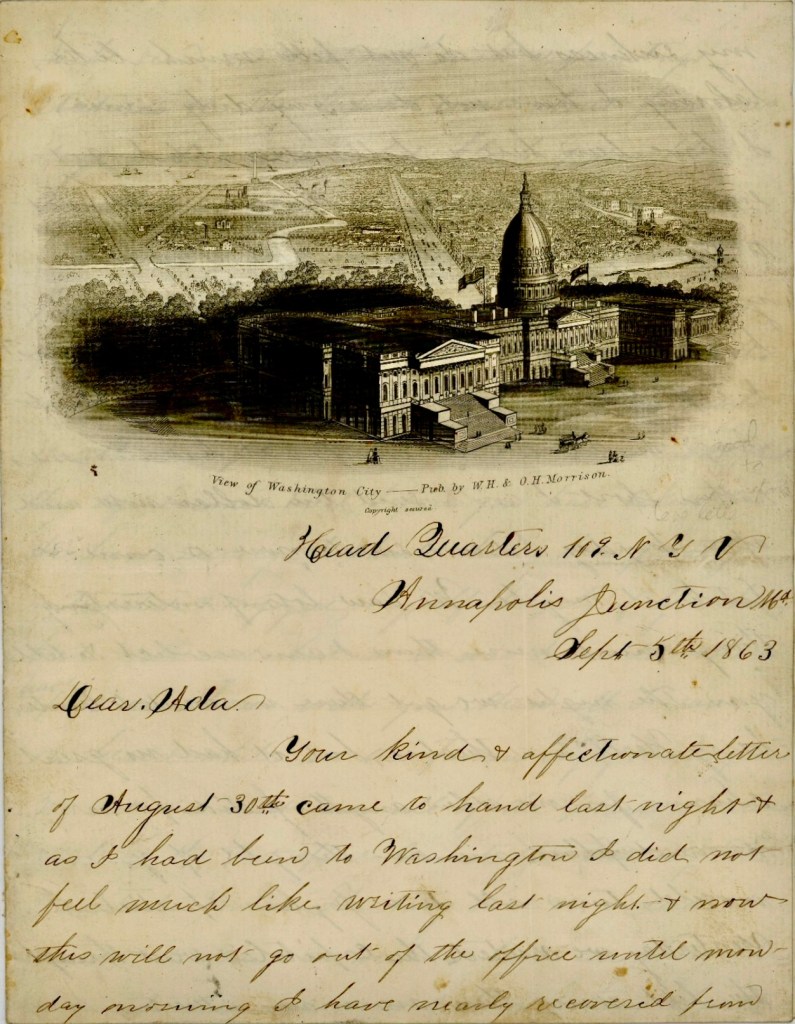 View of Washington City — Pub. by W.H. & O.H. Morrison.
Copyright secured
Head Quarters 109 N Y V
Annapolis Junction Md.
Sept 5th 1863
Dear. Ada.
Your kind & affectionate letter
of August 30th came to hand last night &
as I had been to Washington I did not
feel much like writing last night & now
this will not go out of the office until mon-
day morning I have nearly recovered from